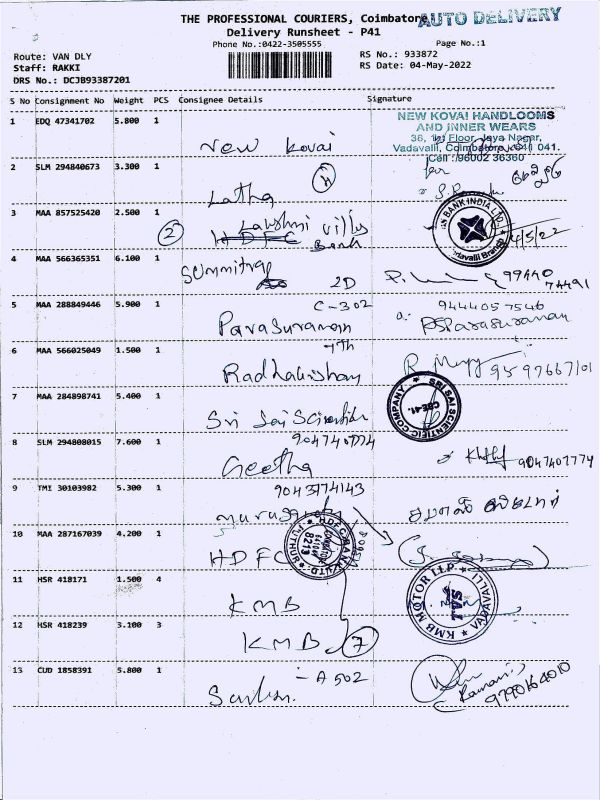 THE PROFESSIONAL COURIERS, Coimbatore
AUTO DELIVERY
Delivery Runsheet - P41
Phone No.:0422-3505555
Page No.:1
Route: VAN DLY
RS No.: 933872
Staff: RAKKI
RS Date: 04-May-2022
DRS No.: DCJB93387201
S No Consignment No Weight PCS Consignee Details Signature
1 EDQ 47341702 5.800 1 New Kovai
NEW KOVAI HANDLOOMS
AND INNER WEARS
36, 1st Floor, Jaya Nagar,
Vadavalli, Coimbatore 641 041.
Cell : 96002 36360
2 SLM 294840673 3.300 1 Latha
3 MAA 857525420 2.500 1 2 Lakshmi Villas
HDFC Bank
BANK INDIA LTD
4/5/22
4 MAA 566365351 6.100 1 2D 99440
74491
5 MAA 288849446 5.900 1 C-302
Parasuraman
9444057546
PSParasuraman
6 MAA 566025049 1.500 1 7th
Radhakrishnan
9597667101
7 MAA 284898741 5.400 1 Sri Sai Scientific
SRI SAI SCIENTIFIC COMPANY
CBE-41.
8 SLM 294808015 7.600 1 9047407774
Geetha
9047407774
9 TMI 30103982 5.300 1 9043774143
10 MAA 287167039 4.200 1 HDFC
HDFC BANK LTD.
8213
11 HSR 418171 1.500 4 KMB
KMB MOTOR LLP
VADAVALLI
12 HSR 418239 3.100 3 KMB 7
13 CUD 1858391 5.800 1 A 502
9790164010